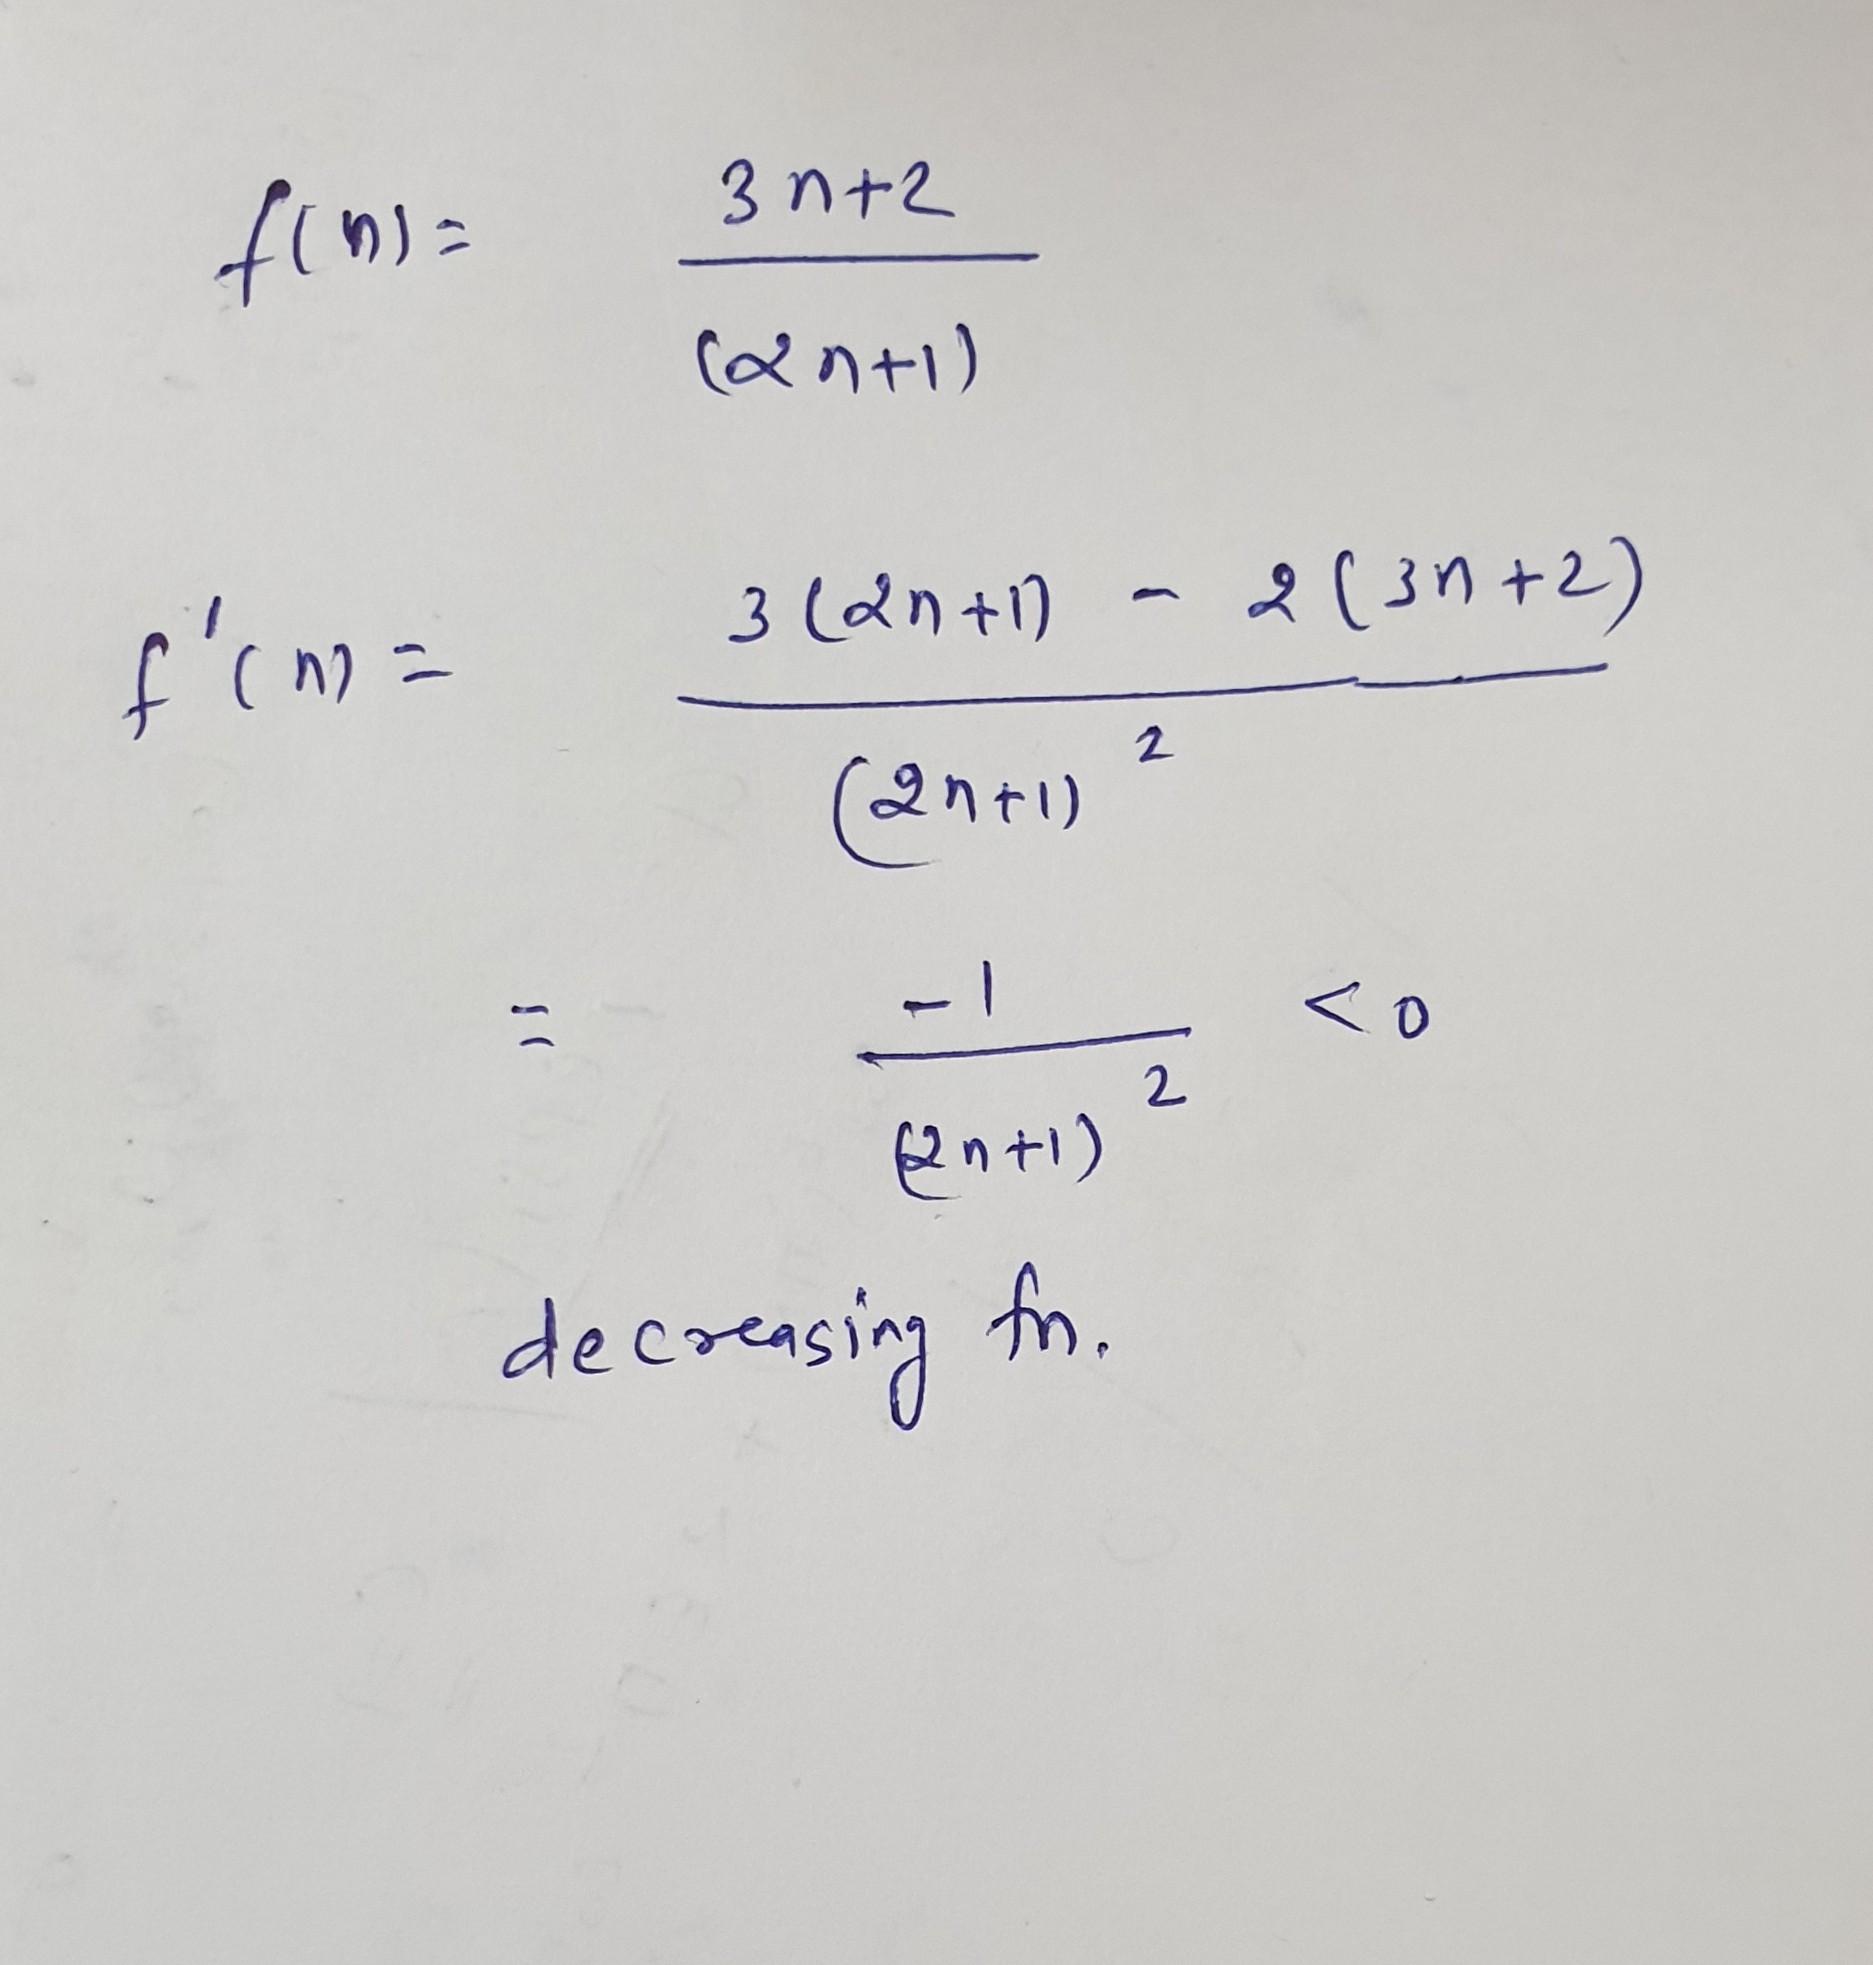 f(n) = 3n+2
(2n+1)
f'(n) = 3(2n+1) - 2(3n+2)
(2n+1)²
= -1 < 0
(2n+1)²
decreasing fn.